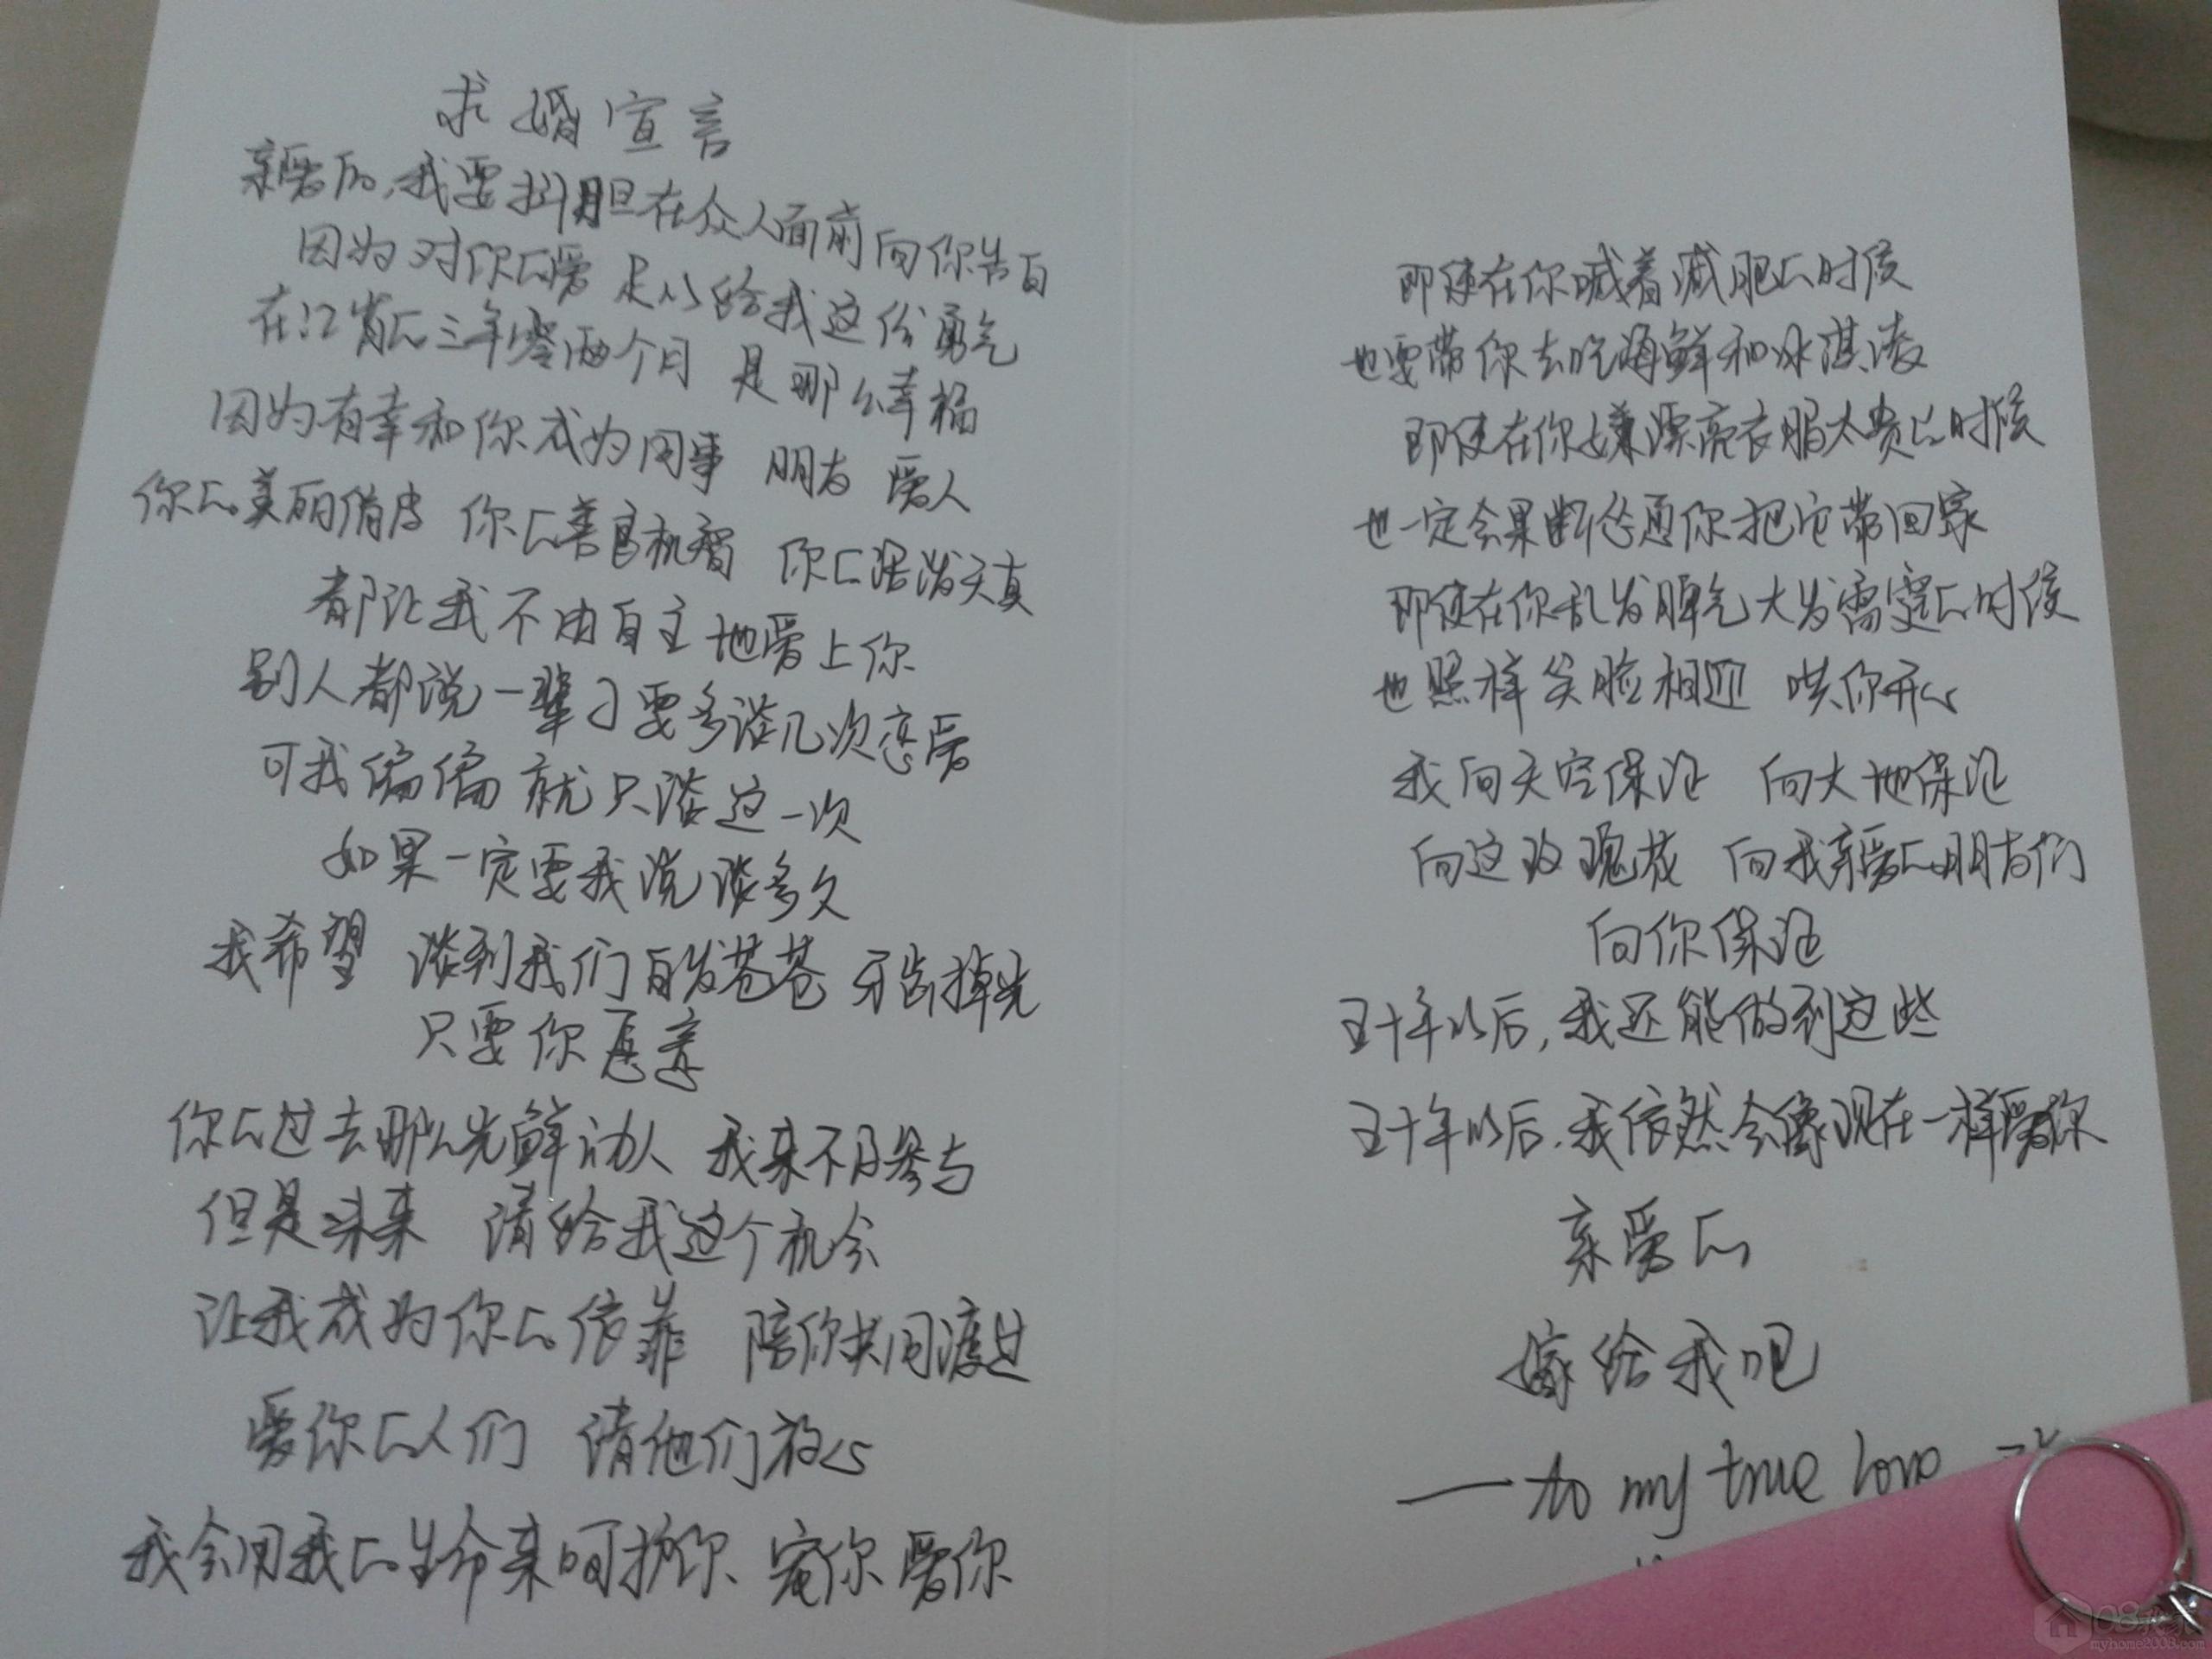 求婚宣言
亲爱的,我要抖胆在众人面前向你告白
因为对你的爱 足以给我这份勇气
在江岸的三年零两个月 是那么幸福
因为有幸和你成为同事 朋友 爱人
你的美丽俏皮 你的善良机智 你的活泼天真
都让我不由自主地爱上你
别人都说一辈子要多谈几次恋爱
可我偏偏就只谈这一次
如果一定要我说谈多久
我希望 谈到我们白发苍苍 牙齿掉光
只要你愿意
你的过去那么光鲜动人 我来不及参与
但是未来 请给我这个机会
让我成为你的依靠 陪你共同渡过
爱你的人们 请他们放心
我会用我的生命来呵护你、宠你 爱你
即使在你喊着减肥的时候
也要带你去吃海鲜和冰淇凌
即使在你嫌漂亮衣服太贵的时候
也一定会果断怂恿你把它带回家
即使在你乱发脾气大发雷霆的时候
也照样笑脸相迎 哄你开心
我向天空保证 向大地保证
向这玫瑰花 向我亲爱的朋友们
向你保证
五十年以后,我还能做到这些
五十年以后,我依然会像现在一样爱你
亲爱的
嫁给我吧
——to my true love
08我家
myhome2008.com